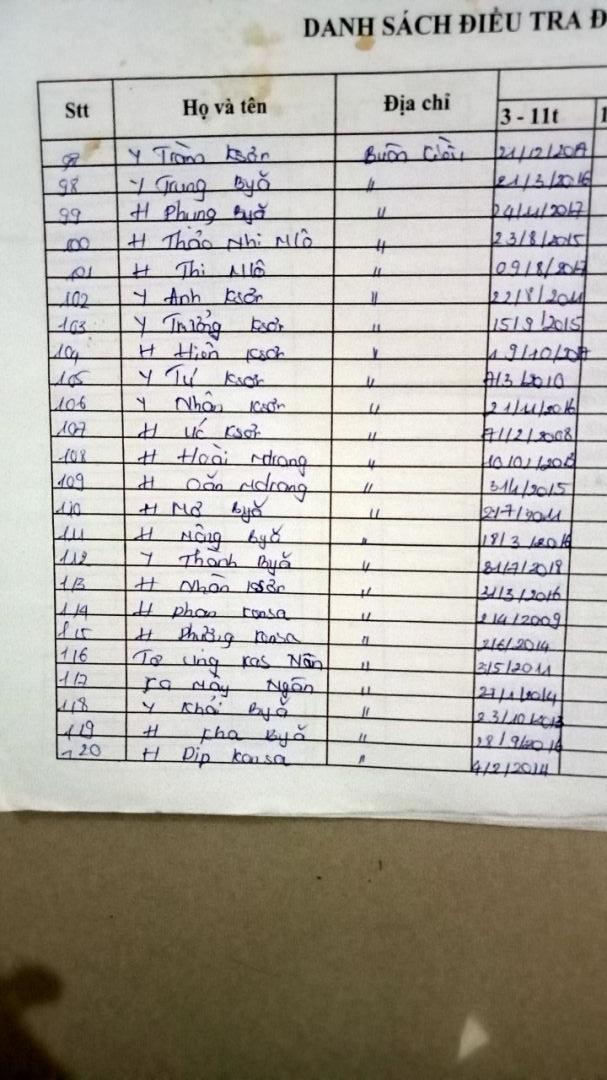 DANH SÁCH ĐIỀU TRA Đ
Stt Họ và tên Địa chỉ 3 - 11t 1
Y Trầm Ksơr Buôn
98 Y Trung Byă " 21/3/2016
99 H Phung Byă " 24/11/2017
100 H Thảo Nhi Mlô " 23/8/2015
101 H Thi Mlô " 09/8/2017
102 Y Anh Ksơr " 22/8/2011
103 Y Trưởng Ksơr " 15/9/2015
104 H Hiền Ksơr "
105 Y Tư Ksơr " 7/3/2010
106 Y Nhân Ksơr " 21/11/2016
107 H Úc Ksơr " 7/12/2008
108 H Hoài Ndrang "
109 H Oăn Mdrang " 3/4/2015
110 H Mơ Byă " 2/7/2011
111 H Nông Byă " 18/3/2016
112 Y Thành Byă " 31/7/2018
113 H Nhân Ksơr " 31/3/2016
114 H Phan Konsa " 2/4/2009
115 H Phương Konsa " 2/6/2014
116 " 3/5/2011
117 Ngân " 27/1/2014
118 Y Khải Byă " 23/10/2013
119 H Kha Byă " 28/9/2016
120 H Dip Konsa " 4/2/2014